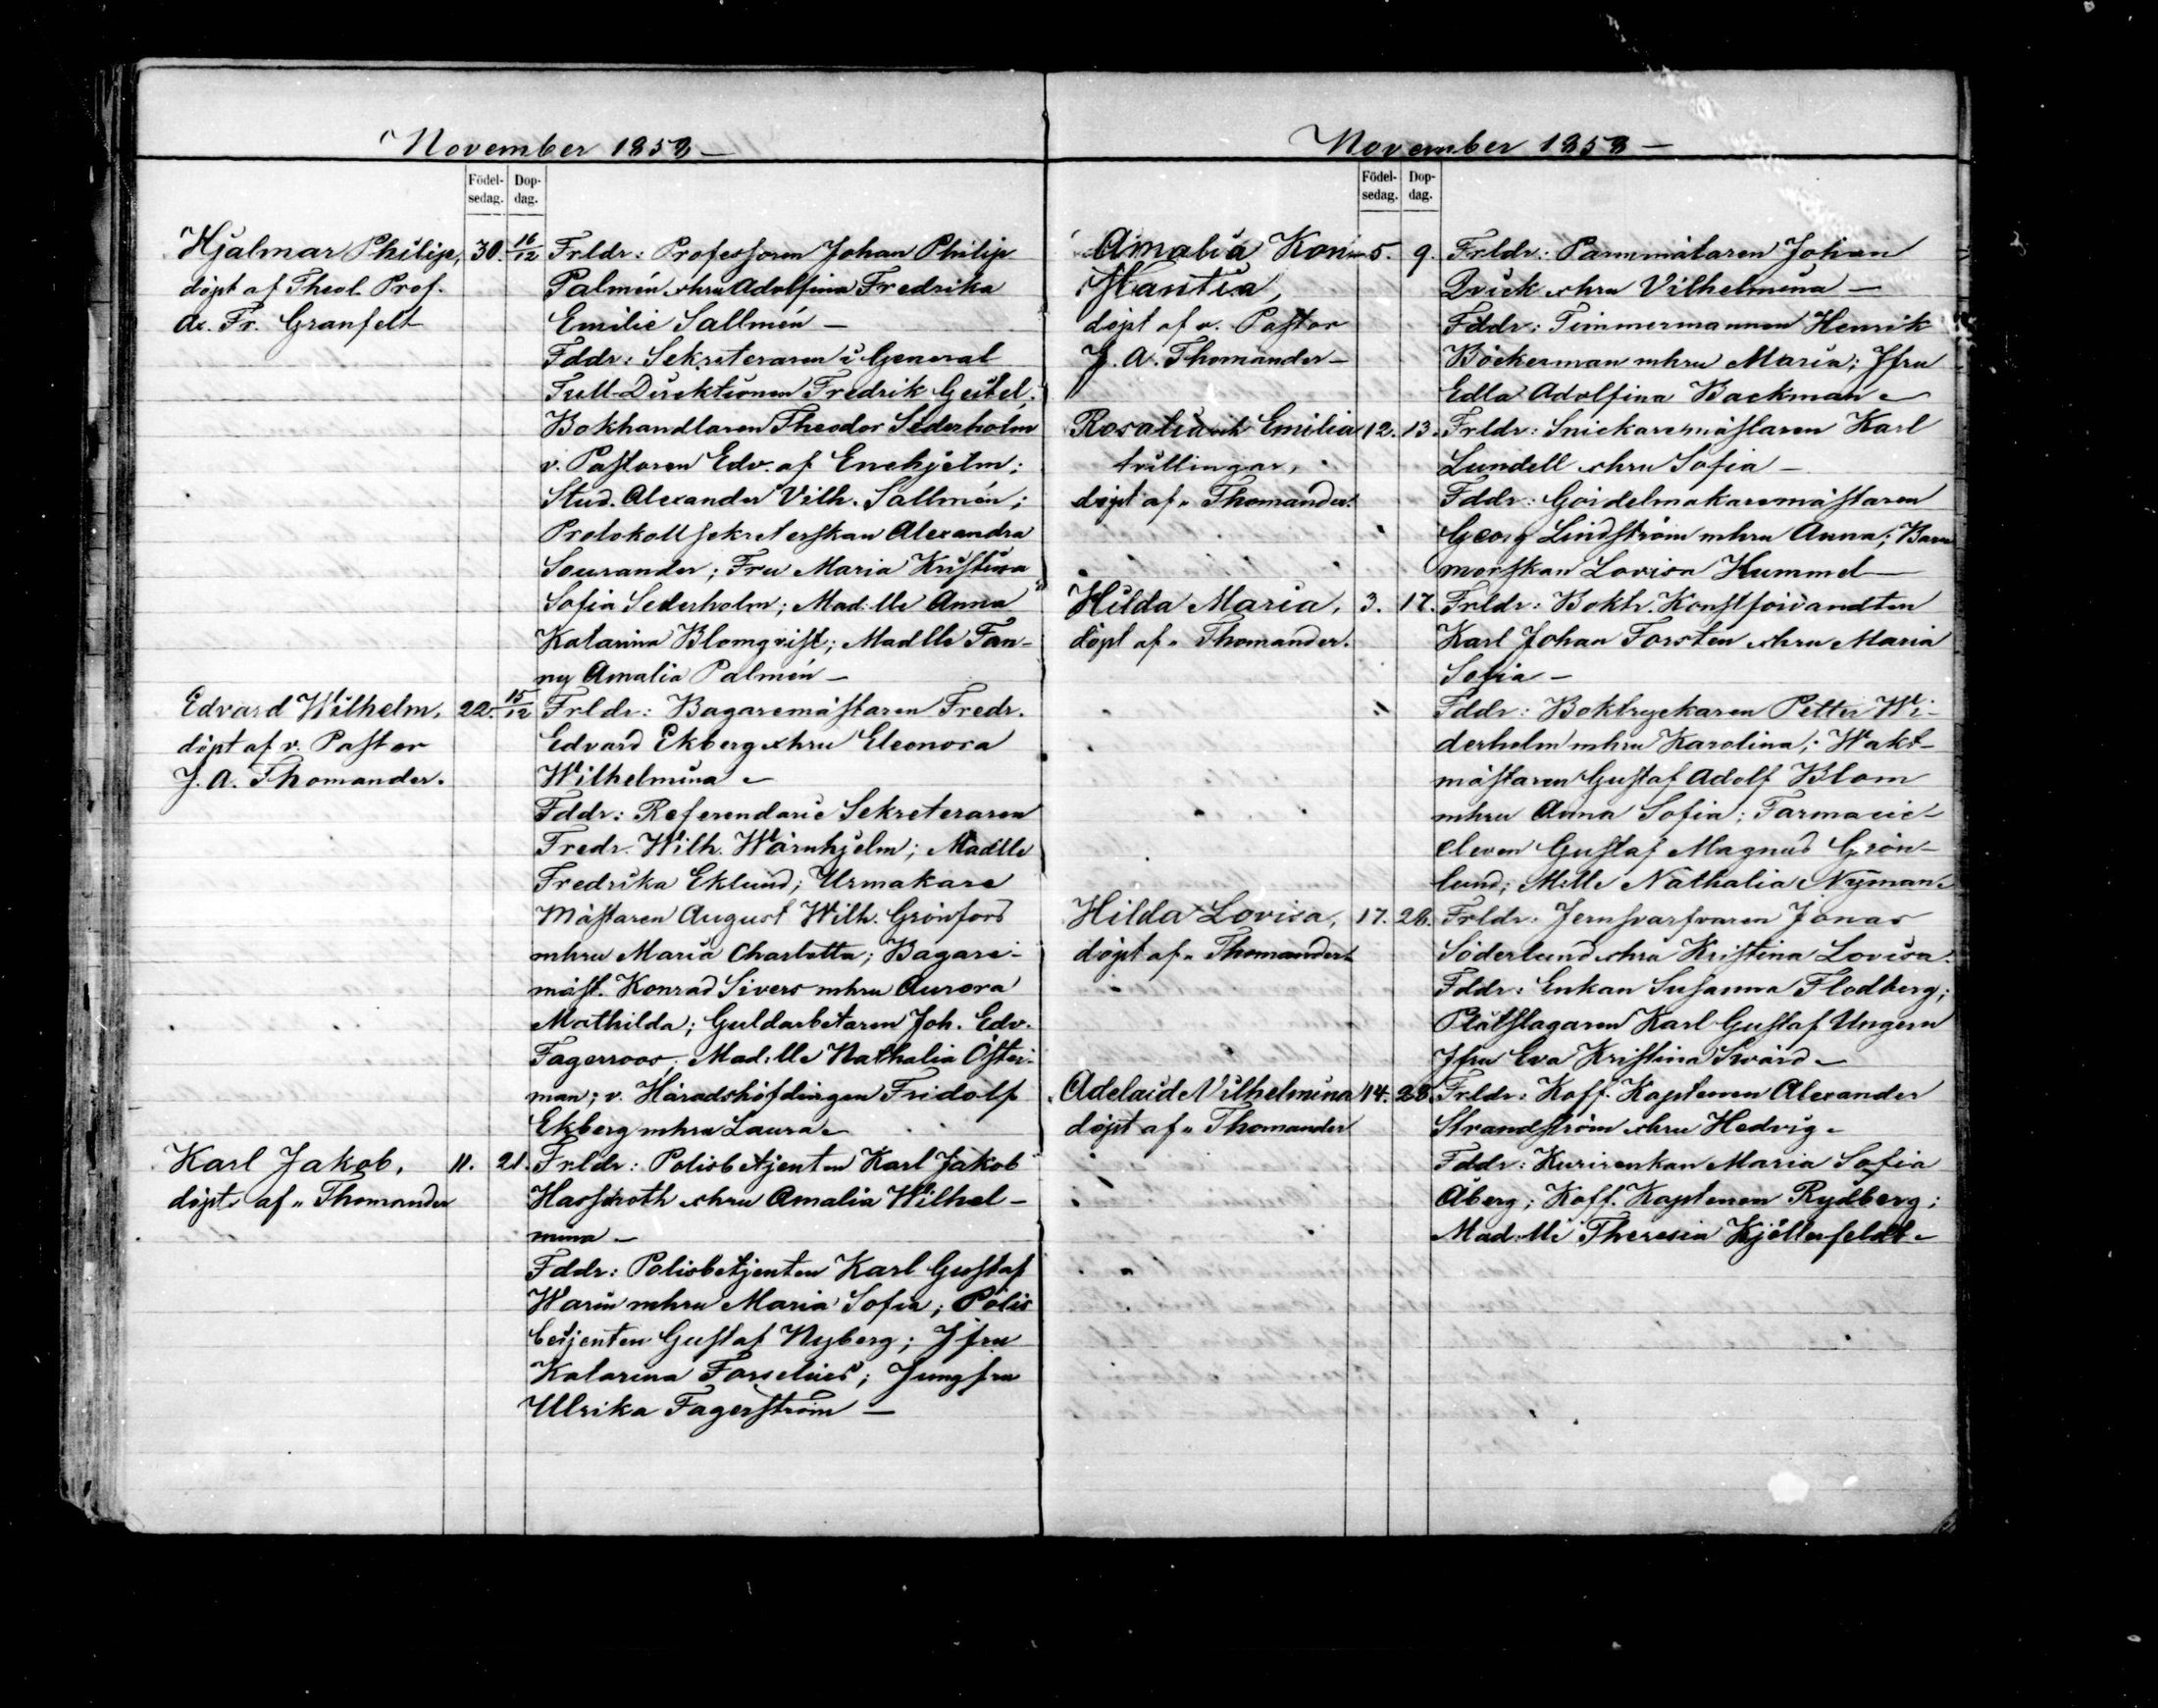 November 1858 —
Födel-
sedag.
Dop-
dag.
Hjalmar Philip, 30. 16/12
döpt af Theol. Prof.
Ax. Fr. Granfelt
Frldr: Professoren Johan Philip
Palmén o hru Adolfina Fredrika
Emilie Sallmén —
Fddr: Sekreteraren i General
Tull-Direktionen Fredrik Geitel;
Bokhandlaren Theodor Sederholm
v. Pastoren Edv. af Enehjelm;
Stud. Alexander Vilh. Sallmén;
Protokollsekreterskan Alexandra
Sourander; Fru Maria Kristina
Sofia Sederholm; Mad:lle Anna
Katarina Blomqvist; Madlle Fan-
ny Amalia Palmén —
Edvard Wilhelm, 22. 15/12
döpt af v. Pastor
J. A. Thomander.
Frldr: Bagaremästaren Fredr.
Edvard Ekberg o hru Eleonora
Wilhelmina —
Fddr: Referendarie Sekreteraren
Fredr. Wilh. Wärnhjelm; Madlle
Fredrika Eklund; Urmakare
Mästaren August Wilh. Grönfors
m hru Maria Charlotta; Bagare-
mäst. Konrad Sivers m hru Aurora
Mathilda; Guldarbetaren Joh. Edv.
Fagerroos; Mad:lle Nathalia Öster-
man; v. Häradshöfdingen Fridolf
Ekberg m hru Laura —
Karl Jakob, 11. 21.
döpt af " Thomander
Frldr: Polisbetjenten Karl Jakob
Hassiroth o hru Amalia Wilhel-
mina —
Fddr: Polisbetjenten Karl Gustaf
Warén m hru Maria Sofia; Polis
betjenten Gustaf Nyberg; Jfru
Katarina Forselius; Jungfru
Ulrika Fagerström —
November 1858 —
Födel-
sedag.
Dop-
dag.
Amalia Kon- 5. 9.
stantia,
döpt af v. Pastor
J. A. Thomander —
Frldr: Parmmätaren Johan
Qvick o hru Vilhelmina —
Fddr: Timmermannen Henrik
Böckerman m hru Maria; Jfru
Edla Adolfina Backman —
Rosalia och Emilia 12. 13.
tvillingar,
döpt af " Thomander.
Frldr: Snickaremästaren Karl
Lundell o hru Sofia —
Fddr: Gördelmakaremästaren
Georg Lindström m hru Anna; Barn
morskan Lovisa Hummel —
Hilda Maria, 3. 17.
döpt af " Thomander.
Frldr: Boktr. Konstförvandten
Karl Johan Forsten o hru Maria
Sofia —
Fddr: Boktryckaren Petter Wi-
derholm m hru Karolina; Wakt-
mästaren Gustaf Adolf Blom
m hru Anna Sofia; Farmacie-
eleven Gustaf Magnus Grön-
lund; M:lle Nathalia Nyman —
Hilda Lovisa, 17. 26.
döpt af " Thomander
Frldr: Jernsvarfvaren Jonas
Söderlund o hru Kristina Lovisa.
Fddr: Enkan Susanna Flodberg;
Plåtslagaren Karl Gustaf Ungern
Jfru Eva Kristina Swärd —
Adelaide Vilhelmina 14. 28.
döpt af " Thomander
Frldr: Koff. Kaptenen Alexander
Strandström o hru Hedvig —
Fddr: Kurirenkan Maria Sofia
Åberg; Koff. Kaptenen Rydberg;
Mad:lle Theresia Kjöllerfeldt —